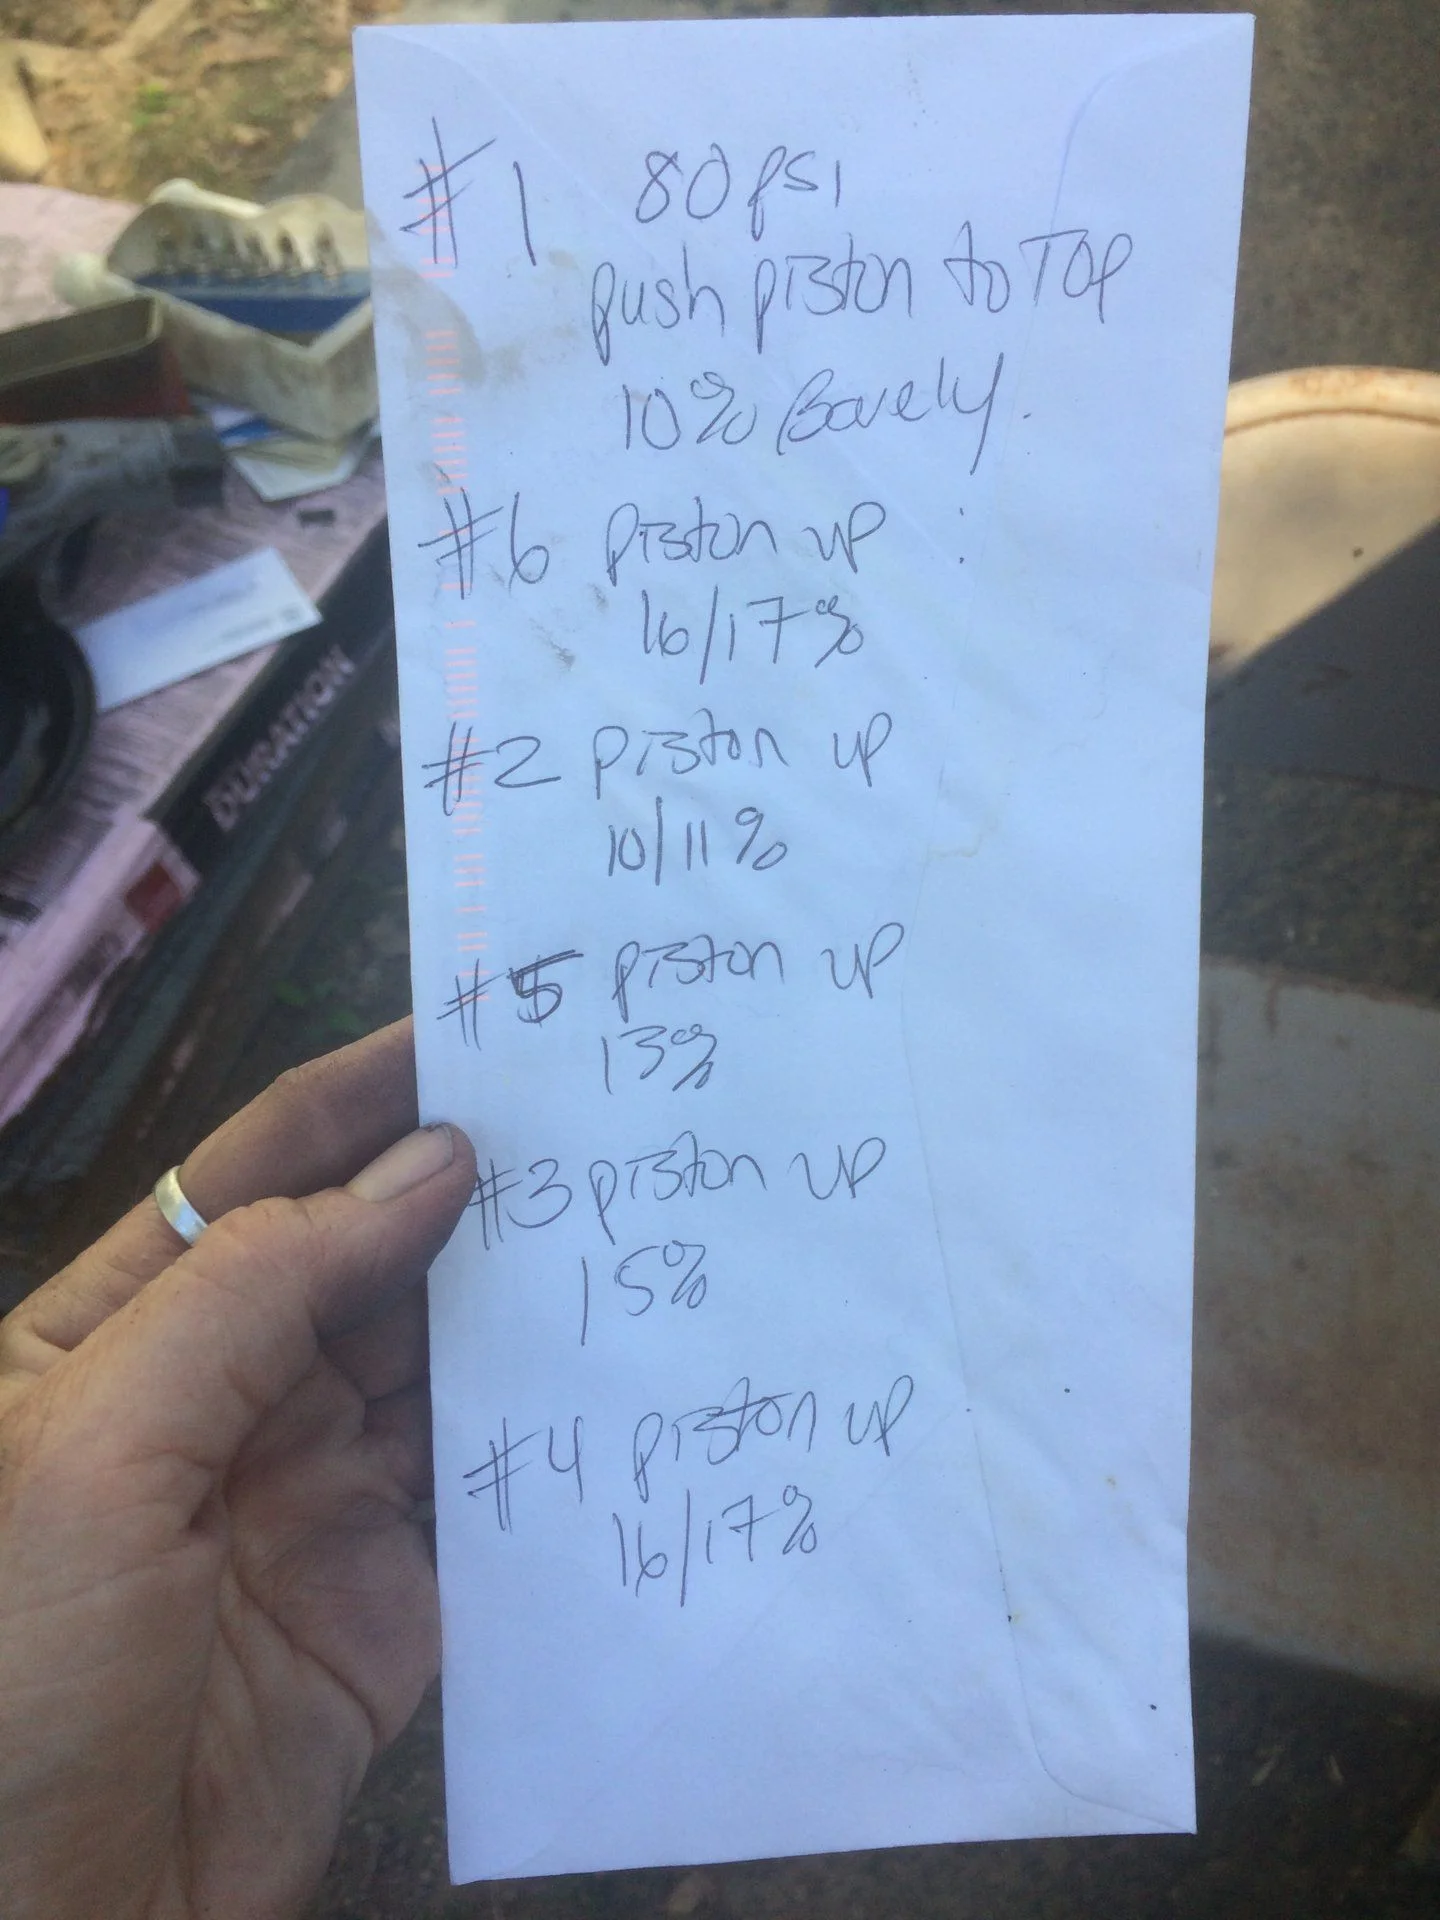 #1 80 psi
push piston to TOP
10% Barely.
#6 piston up :
16/17%
#2 piston up
10/11%
#5 piston up
13%
#3 piston up
15%
#4 piston up
16/17%
DURATION